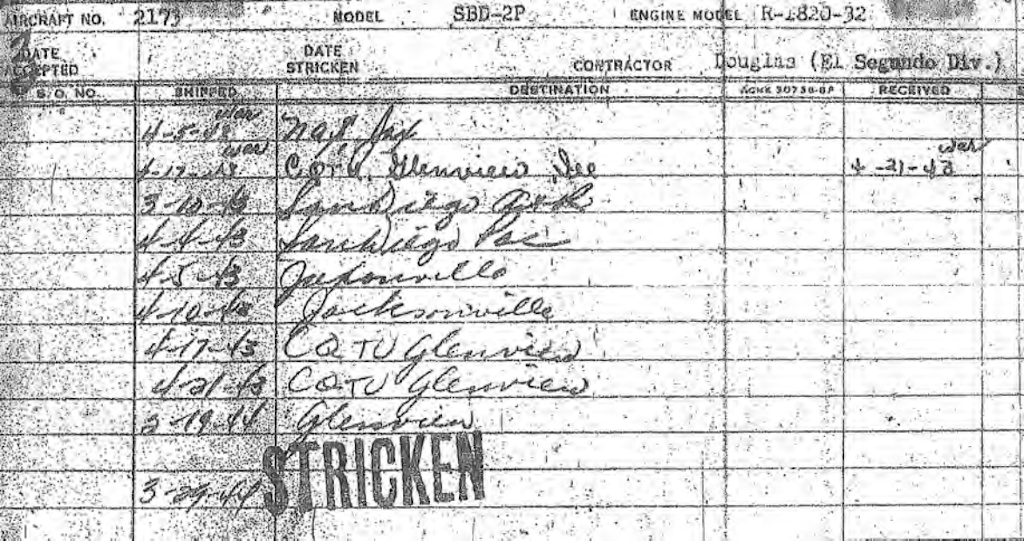 AIRCRAFT NO. 2173 MODEL SBD-2P ENGINE MODEL R-1820-32
DATE ACCEPTED DATE STRICKEN CONTRACTOR Douglas (El Segundo Div.)
S. O. NO. SHIPPED DESTINATION RECEIVED
war
4-5-43 Nas, Jax
war war
4-17-43 CQTU, Glenview Ill 4-21-43
3-10-43 San Diego
4-4-43 San Diego Pac
4-5-43 Jacksonville
4-10-43 Jacksonville
4-17-43 CQTU Glenview
4-21-43 CQTU Glenview
3-19-44 Glenview
3-29-44 STRICKEN